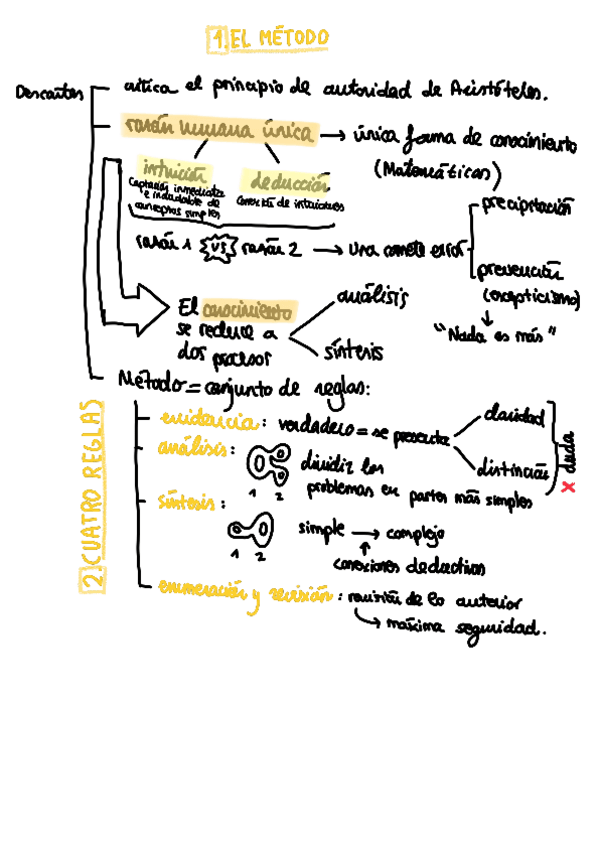 1. EL MÉTODO
Descartes
critica el principio de autoridad de Aristóteles.
razón humana única → única forma de conocimiento
(Matemáticas)
intuición
Captación inmediata
e indudable de
conceptos simples
deducción
Conexión de intuiciones
razón 1 VS razón 2 → Una comete error
precipitación
prevención
(escepticismo)
"Nada es más"
El conocimiento
se reduce a
dos procesos
análisis
síntesis
Método = conjunto de reglas:
2. CUATRO REGLAS
evidencia: verdadero = se presenta
claridad
distinción
x duda
análisis: dividir los
problemas en partes más simples
1 2
síntesis: simple → complejo
1 2
conexiones deductivas
enumeración y revisión: revisión de lo anterior
→ máxima seguridad.